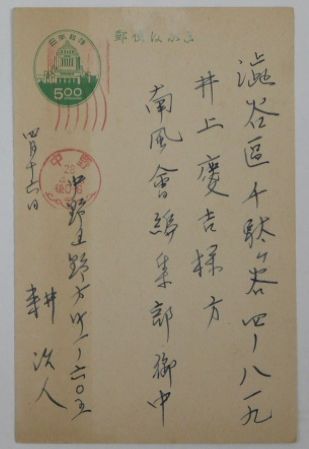 澁谷區千駄ヶ谷四ノ八一九
井上慶吉様方
南風會編集部御中
郵便はがき
日本郵便
5.00
中野
四月十六日
中野区野方町一ノ六〇五
耕次人